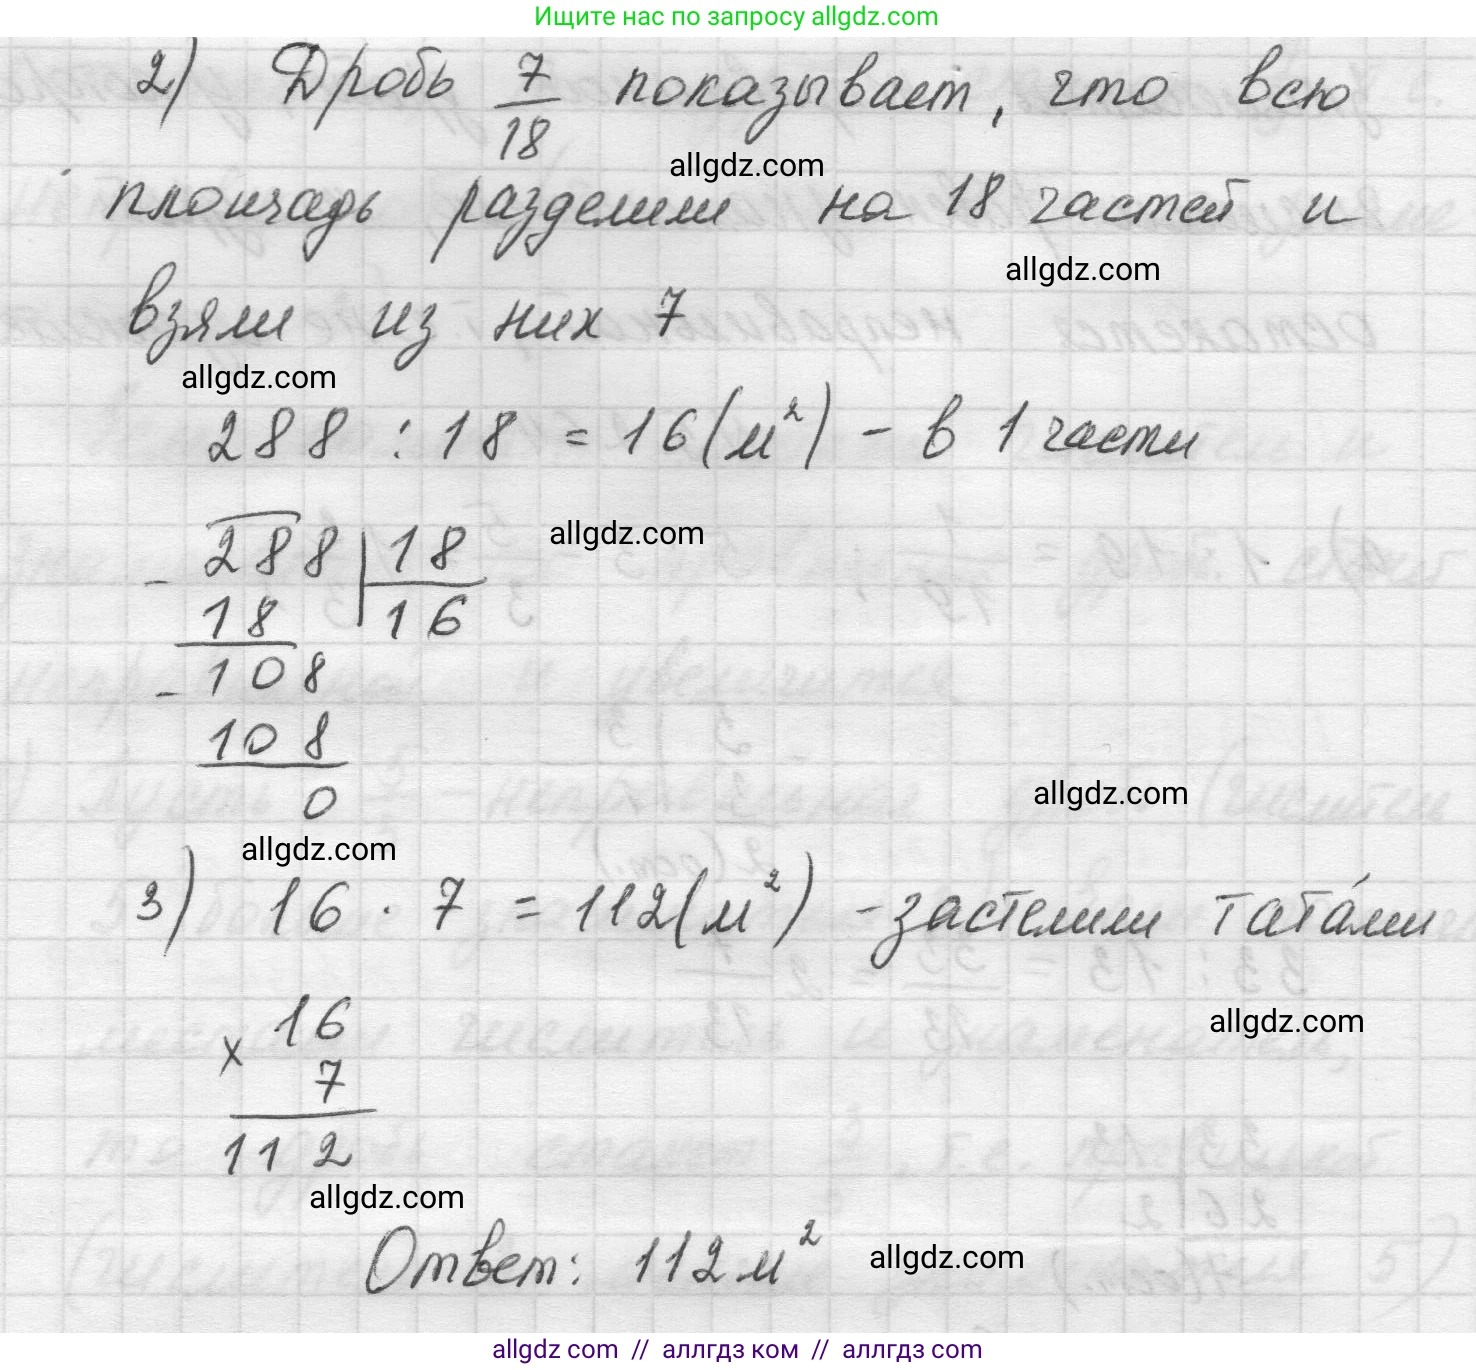 Ищите нас по запросу allgdz.com
2) Дробь 7/18 показывает, что всю
allgdz.com
площадь разделили на 18 частей и
allgdz.com
взяли из них 7
allgdz.com
288 : 18 = 16 (м²) - в 1 части
allgdz.com
- 288 | 18
18 | 16
- 108
108
0
allgdz.com
allgdz.com
3) 16 · 7 = 112 (м²) - застелили тата́ми
allgdz.com
× 16
7
112
allgdz.com
Ответ: 112 м²
allgdz.com
allgdz.com // аллгдз ком // аллгдз.com